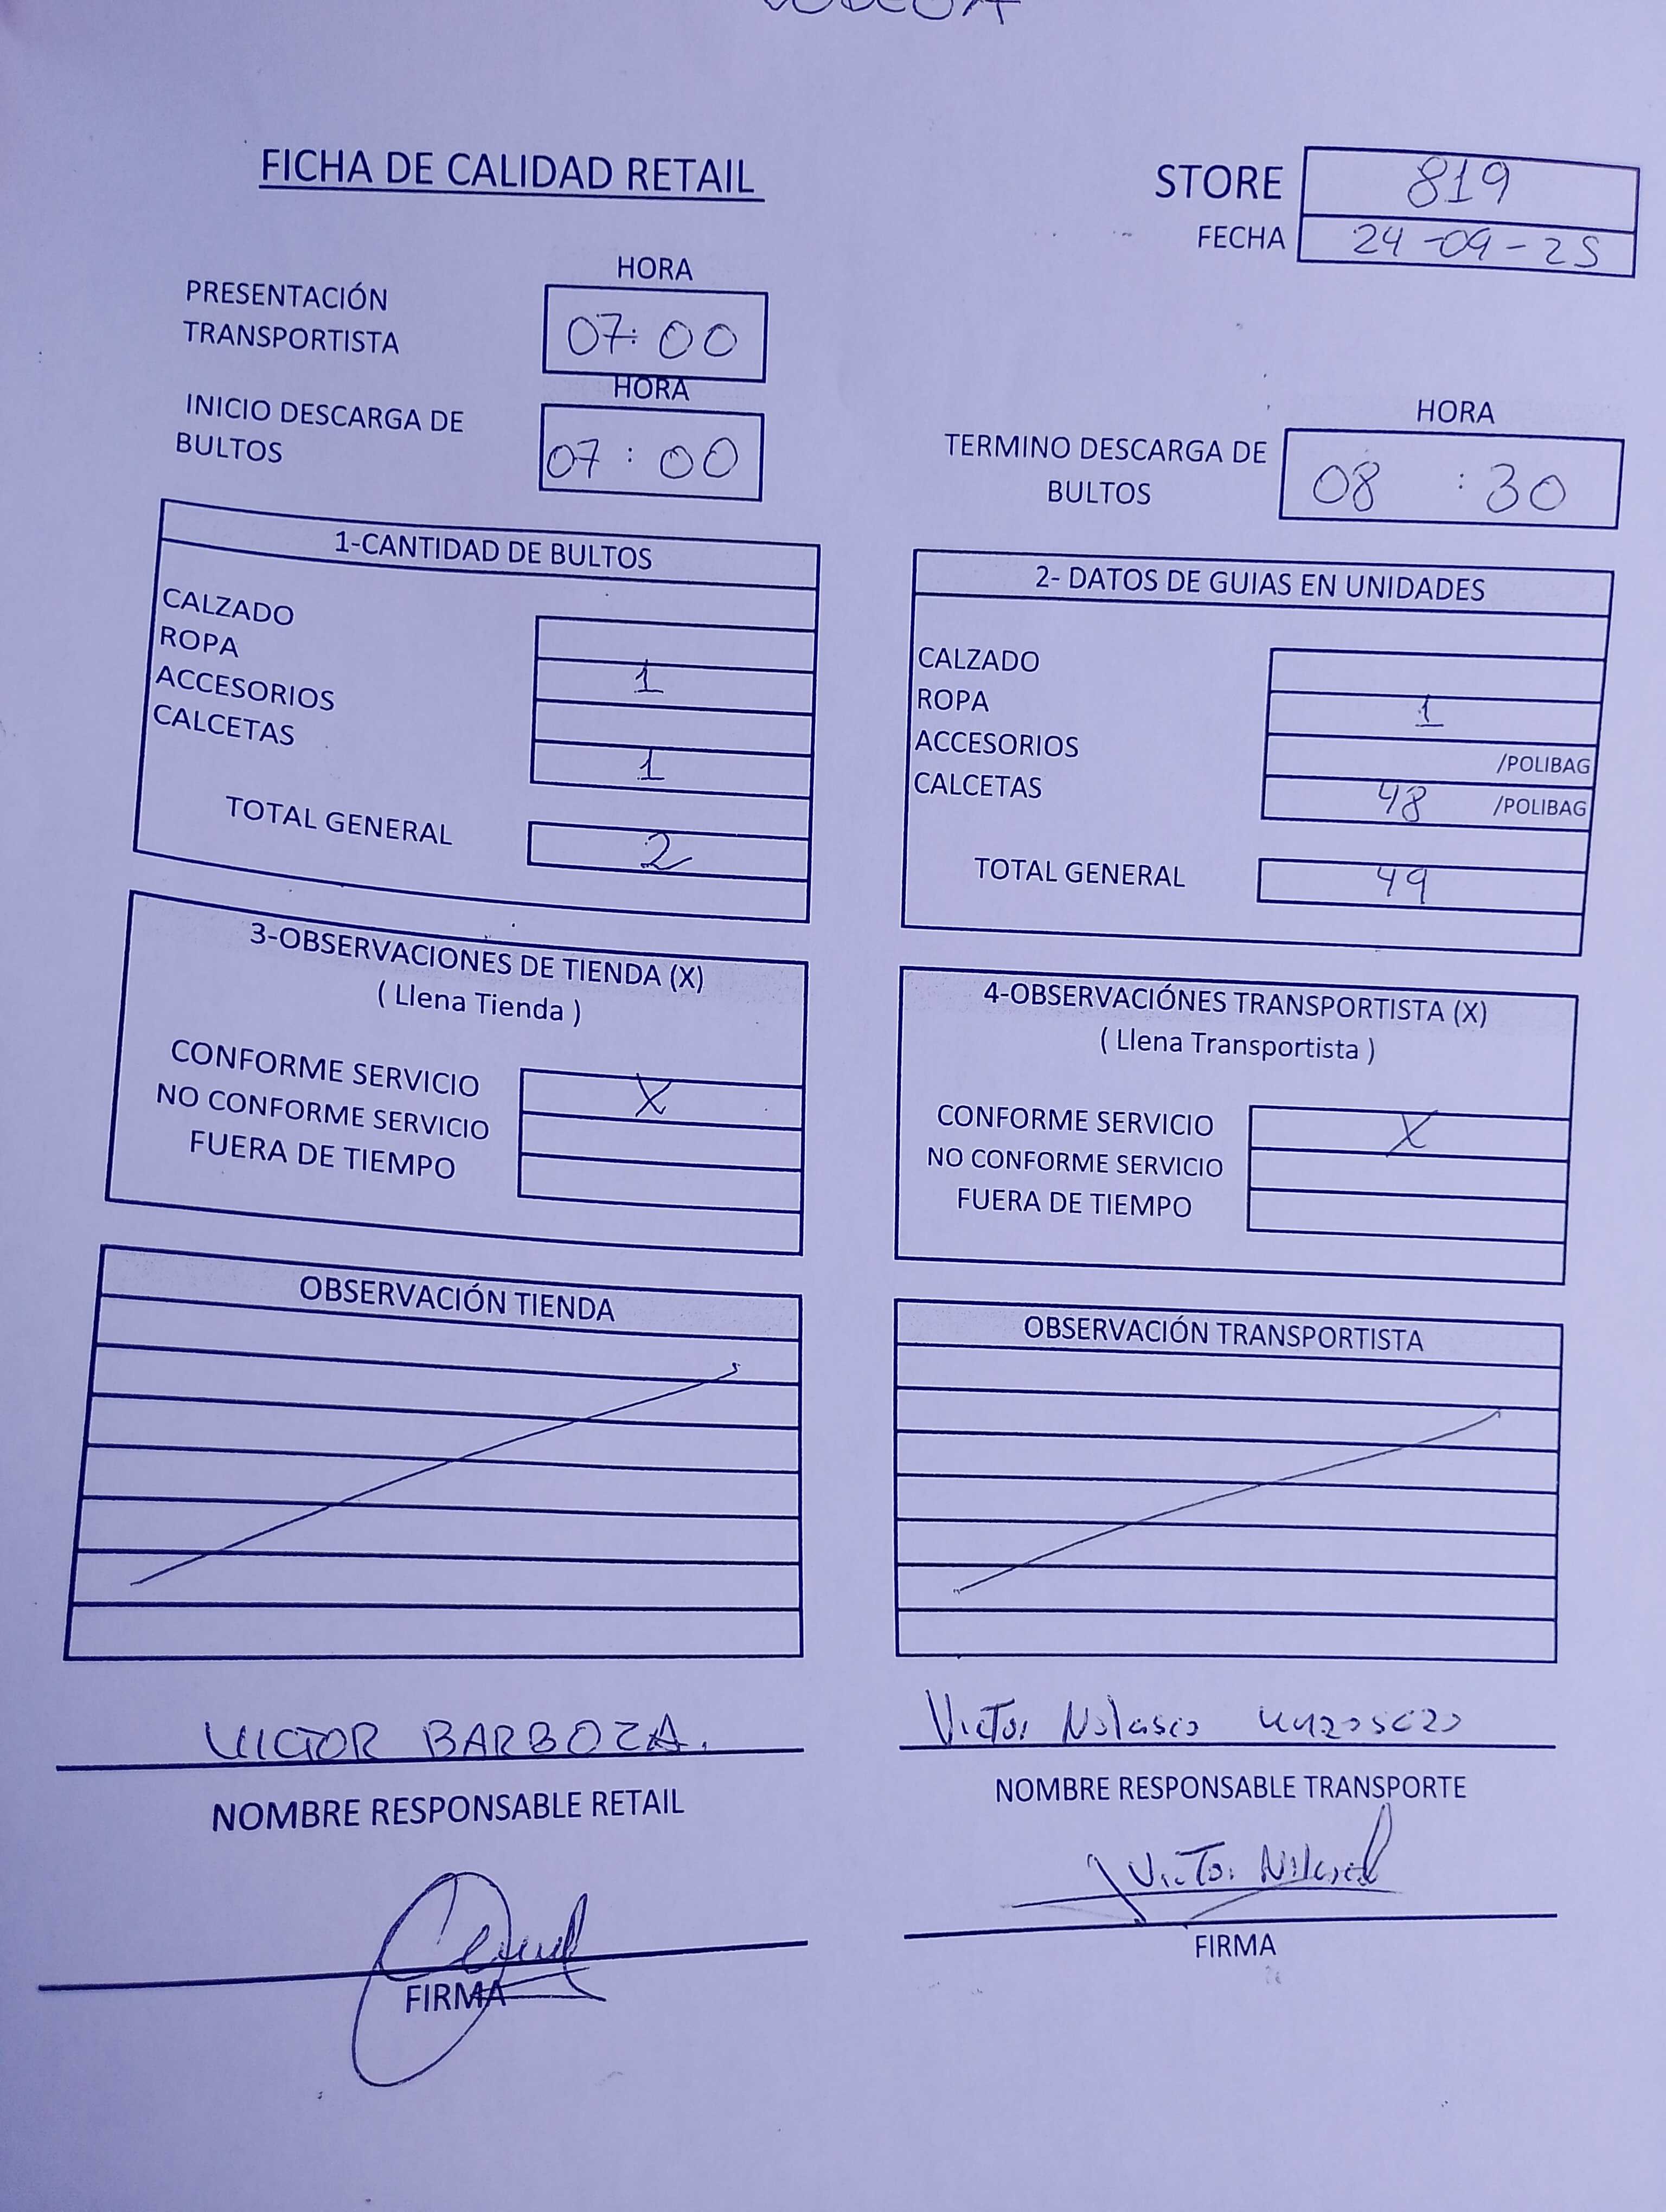 FICHA DE CALIDAD RETAIL
STORE 819
FECHA 24-09-25
HORA
PRESENTACIÓN
TRANSPORTISTA
07:00
HORA
INICIO DESCARGA DE
BULTOS
07:00
HORA
TERMINO DESCARGA DE
BULTOS
08:30
1-CANTIDAD DE BULTOS
CALZADO
ROPA 1
ACCESORIOS
CALCETAS 1
TOTAL GENERAL 2
2- DATOS DE GUIAS EN UNIDADES
CALZADO
ROPA 1
ACCESORIOS /POLIBAG
CALCETAS 48 /POLIBAG
TOTAL GENERAL 49
3-OBSERVACIONES DE TIENDA (X)
( Llena Tienda )
CONFORME SERVICIO X
NO CONFORME SERVICIO
FUERA DE TIEMPO
4-OBSERVACIÓNES TRANSPORTISTA (X)
( Llena Transportista )
CONFORME SERVICIO X
NO CONFORME SERVICIO
FUERA DE TIEMPO
OBSERVACIÓN TIENDA
OBSERVACIÓN TRANSPORTISTA
VICTOR BARBOZA.
NOMBRE RESPONSABLE RETAIL
FIRMA
Victor Nolasco
NOMBRE RESPONSABLE TRANSPORTE
Victor
FIRMA